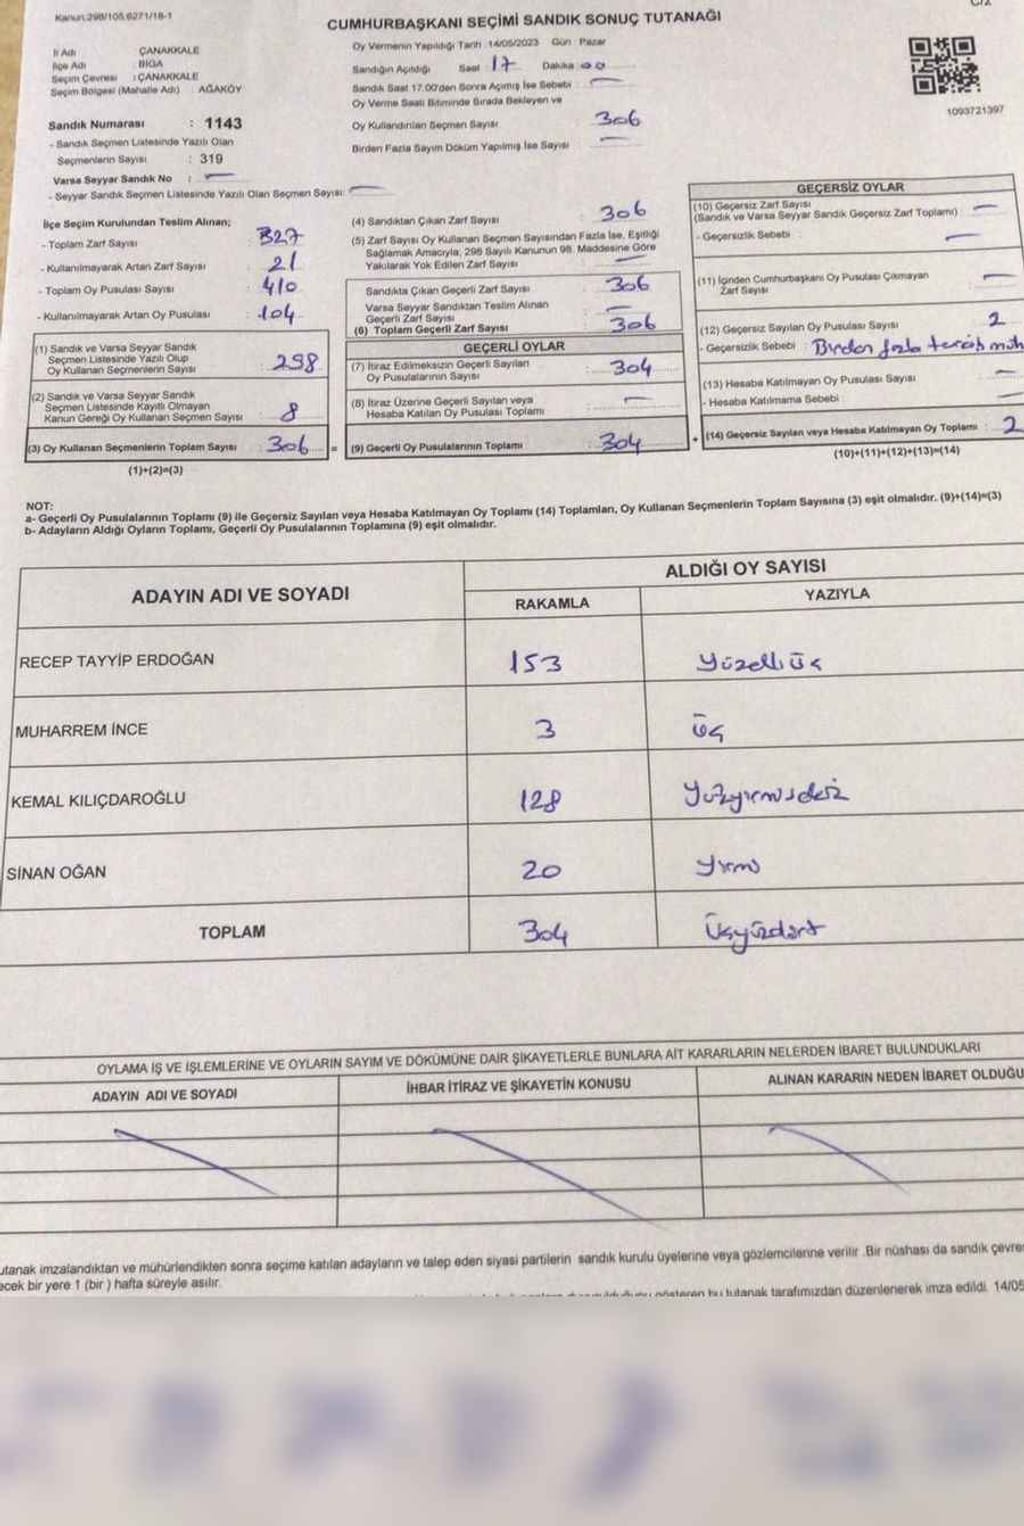 Kanun:298/105.6271/18-1
CUMHURBAŞKANI SEÇİMİ SANDIK SONUÇ TUTANAĞI
İl Adı ÇANAKKALE
İlçe Adı BİGA
Seçim Çevresi : ÇANAKKALE
Seçim Bölgesi (Mahalle Adı) AĞAKÖY
Oy Vermenin Yapıldığı Tarih :14/05/2023 Gün : Pazar
Sandığın Açıldığı Saat 17 Dakika 00
Sandık Saat 17.00'den Sonra Açılmış İse Sebebi —
Oy Verme Saati Bitiminde Sırada Bekleyen ve
Oy Kullandırılan Seçmen Sayısı 306
Birden Fazla Sayım Döküm Yapılmış İse Sayısı —
1093721397
Sandık Numarası : 1143
- Sandık Seçmen Listesinde Yazılı Olan
Seçmenlerin Sayısı : 319
Varsa Seyyar Sandık No : —
- Seyyar Sandık Seçmen Listesinde Yazılı Olan Seçmen Sayısı: —
İlçe Seçim Kurulundan Teslim Alınan;
- Toplam Zarf Sayısı : 327
- Kullanılmayarak Artan Zarf Sayısı : 21
- Toplam Oy Pusulası Sayısı : 410
- Kullanılmayarak Artan Oy Pusulası : 104
(1) Sandık ve Varsa Seyyar Sandık
Seçmen Listesinde Yazılı Olup
Oy Kullanan Seçmenlerin Sayısı : 298
(2) Sandık ve Varsa Seyyar Sandık
Seçmen Listesinde Kayıtlı Olmayan
Kanun Gereği Oy Kullanan Seçmen Sayısı 8
(3) Oy Kullanan Seçmenlerin Toplam Sayısı : 306 =
(1)+(2)=(3)
(4) Sandıktan Çıkan Zarf Sayısı 306
(5) Zarf Sayısı Oy Kullanan Seçmen Sayısından Fazla İse, Eşitliği
Sağlamak Amacıyla, 298 Sayılı Kanunun 98. Maddesine Göre
Yakılarak Yok Edilen Zarf Sayısı —
Sandıkta Çıkan Geçerli Zarf Sayısı : 306
Varsa Seyyar Sandıktan Teslim Alınan
Geçerli Zarf Sayısı —
(6) Toplam Geçerli Zarf Sayısı : 306
GEÇERLİ OYLAR
(7) İtiraz Edilmeksizin Geçerli Sayılan
Oy Pusulalarının Sayısı : 304
(8) İtiraz Üzerine Geçerli Sayılan veya
Hesaba Katılan Oy Pusulası Toplamı : —
(9) Geçerli Oy Pusulalarının Toplamı : 304 +
GEÇERSİZ OYLAR
(10) Geçersiz Zarf Sayısı
(Sandık ve Varsa Seyyar Sandık Geçersiz Zarf Toplamı) —
- Geçersizlik Sebebi : —
(11) İçinden Cumhurbaşkanı Oy Pusulası Çıkmayan
Zarf Sayısı —
(12) Geçersiz Sayılan Oy Pusulası Sayısı 2
- Geçersizlik Sebebi : Birden fazla tercih müh
(13) Hesaba Katılmayan Oy Pusulası Sayısı —
- Hesaba Katılmama Sebebi : —
(14) Geçersiz Sayılan veya Hesaba Katılmayan Oy Toplamı : 2
(10)+(11)+(12)+(13)=(14)
NOT:
a- Geçerli Oy Pusulalarının Toplamı (9) ile Geçersiz Sayılan veya Hesaba Katılmayan Oy Toplamı (14) Toplamları, Oy Kullanan Seçmenlerin Toplam Sayısına (3) eşit olmalıdır. (9)+(14)=(3)
b- Adayların Aldığı Oyların Toplamı, Geçerli Oy Pusulalarının Toplamına (9) eşit olmalıdır.
ADAYIN ADI VE SOYADI ALDIĞI OY SAYISI
RAKAMLA YAZIYLA
RECEP TAYYİP ERDOĞAN 153 Yüzelliüç
MUHARREM İNCE 3 üç
KEMAL KILIÇDAROĞLU 128 Yüzyirmisekiz
SİNAN OĞAN 20 Yirmi
TOPLAM 304 Üçyüzdört
OYLAMA İŞ VE İŞLEMLERİNE VE OYLARIN SAYIM VE DÖKÜMÜNE DAİR ŞİKAYETLERLE BUNLARA AİT KARARLARIN NELERDEN İBARET BULUNDUKLARI
ADAYIN ADI VE SOYADI İHBAR İTİRAZ VE ŞİKAYETİN KONUSU ALINAN KARARIN NEDEN İBARET OLDUĞU
utanak imzalandıktan ve mühürlendikten sonra seçime katılan adayların ve talep eden siyasi partilerin sandık kurulu üyelerine veya gözlemcilerine verilir .Bir nüshası da sandık çevre
ecek bir yere 1 (bir ) hafta süreyle asılır.
gösteren bu tutanak tarafımızdan düzenlenerek imza edildi. 14/05